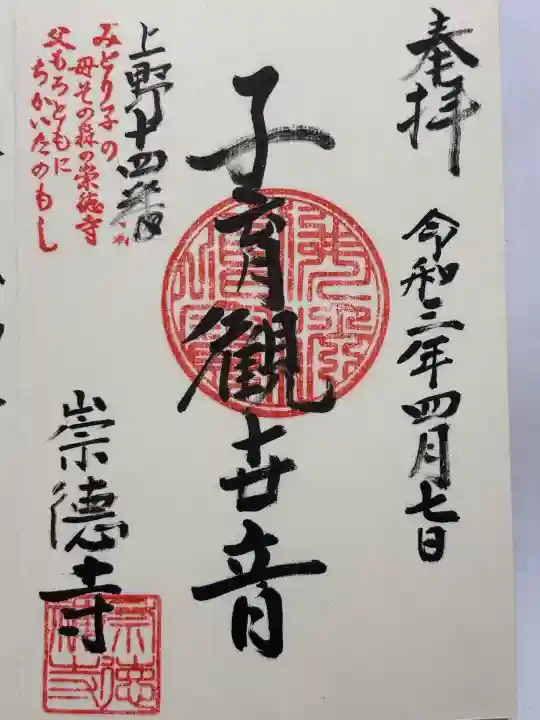 奉拝
令和二年四月七日
子育観世音
上野十四番
みどり子の
母その森の崇徳寺
父もろともに
ちかいたのもし
崇徳寺
崇徳寺